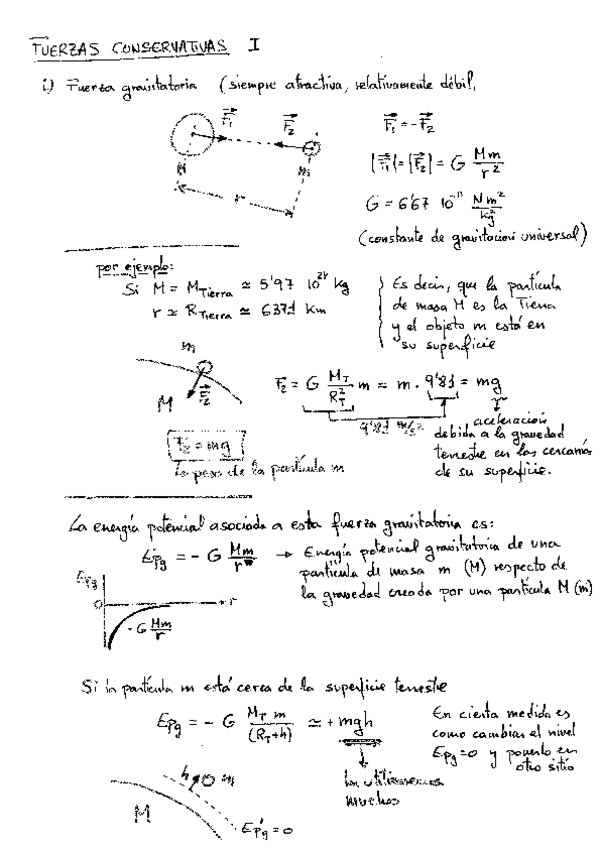 FUERZAS CONSERVATIVAS I
i) Fuerza gravitatoria (siempre atractiva, relativamente débil,
F₁ F₂ F₁ = - F₂
M m r
|F₁| = |F₂| = G Mm/r²
G = 6'67 10⁻¹¹ Nm²/kg²
(constante de gravitación universal)
por ejemplo:
Si M = M_Tierra ≃ 5'97 10²⁴ kg
r ≃ R_Tierra ≃ 6371 Km
Es decir, que la partícula
de masa M es la Tierra
y el objeto m está en
su superficie
m
M F₂
F₂ = G M_T/R_T² m = m · 9'81 = mg
9'81 m/s²
aceleración
debida a la gravedad
terrestre en las cercanías
de su superficie.
F₂ = mg
peso de la partícula m
La energía potencial asociada a esta fuerza gravitatoria es:
Epg = - G Mm/r → Energía potencial gravitatoria de una
partícula de masa m (M) respecto de
la gravedad creada por una partícula M (m)
Epg
0 r
- G Mm/r
Si la partícula m está cerca de la superficie terrestre
Epg = - G M_T m/(R_T+h) ≃ + mgh
En cierta medida es
como cambiar el nivel
Epg = 0 y ponerlo en
otro sitio
utilizaremos
mucho
h m
M
Epg = 0